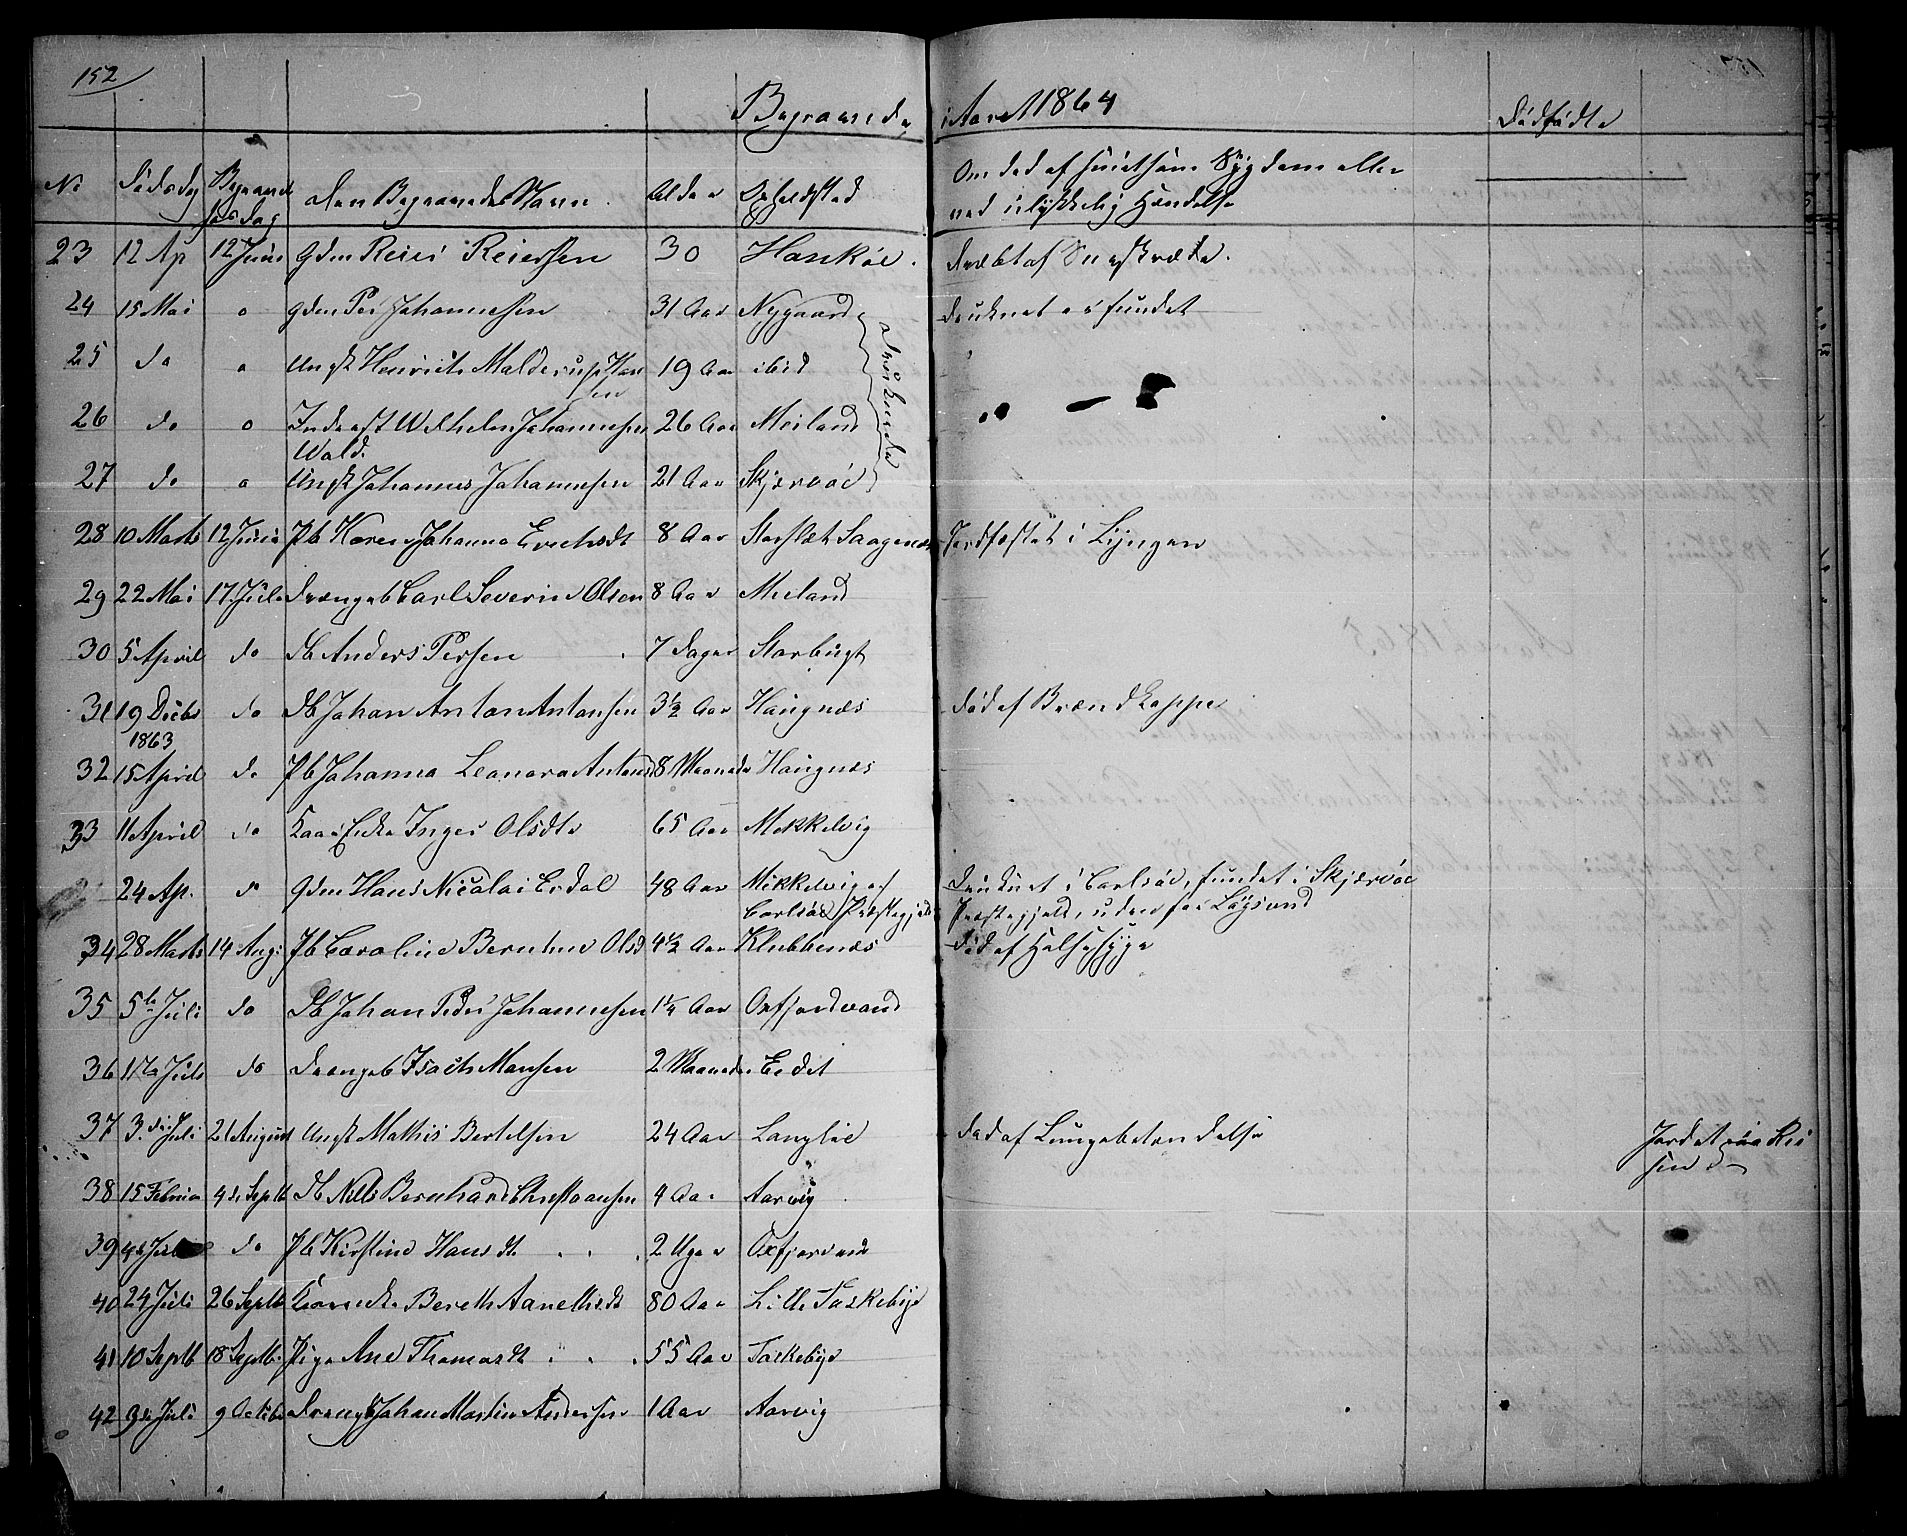 152
Begravede i Aaret 1864
Dødfødte
No Dödsdag Begravelsesdag Den Begravedes Navn Alder Opholdsted Om død af smitsom Sygdom eller
ved ulykkelig Hændelse
23 12 Ap 12 Juni Gdm Reier Reiersen 30 Haukøe dræbt af Sneeskrede
24 15 Mai " Gdm Per Johannesen 31 Aar Nygaard druknet er fundet
25 do " Ungk Henrich Malderup Han
sen 19 Aar ibid
26 do " Inderst Wilhelm Johannesen
Wald. 26 Aar Meiland
27 do " Ungk Johannes Johannesen 21 Aar Skjærvöe
druknede
28 10 Marts 12 Juni Pb Karen Johanna Erichsdt 8 Aar Storslet Jordfæstet i Lyngen
29 22 Mai 17. Juli Drængeb Carl Severin Olsen 8 Aar Meiland
30 5 April do Db Anders Persen 7 Dager Storbugt
31 19 Decbr
1863 do Db Johan Anton Antonsen 3½ Aar Haugnæs død af Brændkoppe
32 15 April do Pb Johanna Leonora Antonsd 8 Maaneder Haugnæs
33 11 April do Inger Olsdtr 65 Aar Mikkelvig
24 Ap. do Gdm Hans Nicolai Erdal 48 Aar Mikkelvig af
Carlsöe Præstegjeld druknet i Carlsöe, fundet i Skjærvöe
Præstegjeld, uden for Lögsund
34 28 Marts 14 Aug. Pb Caroline Berntine Olsd 4½ Aar Klubbenæs död af Halssyge
35 5te Juli do Db Johan Peder Johannesen 1¼ Aar Oxfjordvand
36 17de Juli do Drængeb Isach Monsen 2 Maaneder Eidet
37 3die Juli 21 August Ungk Mathis Bertelsen 24 Aar Langlie død af Lungebetændelse Jordet paa Rei
sen
38 15 Februar 4de Septb Db Nils Bernhard Christiansen 4 Aar Aarvig
39 4de Juli do Pb Kirstine Hansdt 2 Uger Oxfjorvand
40 24 Juli 26 Septb Bereth Aanethsdt 80 Aar Lille Taskebye
41 10 Septb 18 Septb. Pige Ane Thomasdt 55 Aar Taskebye
42 3die Juli 9 October Drengb Johan Martin Andersen 1 Aar Aarvig